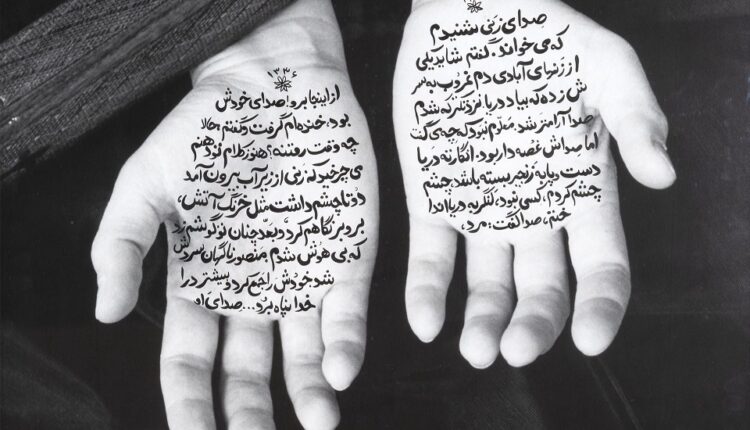 صدای زنی شنیدم
که می خواند. گفتم شاید یکی
از زنهای آبادی دم غروب به سر
ش زده که بیاد دریا. نزدیکتر که شدم
صدا آرامتر شد. معلوم نبود که چه می گفت
اما صداش غصه دار بود. انگار نه دریا
دست و پا به زنجیر بسته باشند. چشم
چشم کردم، کسی نبود، لنگر به دریا اندا
ختم، صدا گفت: مرد،
۱۳۳۶
از اینجا برو! صدای خودش
بود. خنده ام گرفت و گفتم، حالا
چه وقت رفتنه؟ هنوز کلام تو دهنم
می چرخید که زنی از زیر آب بیرون آمد
دو تا چشم داشت مثل خرنگ آتش،
بر و بر نگاهم کرد و بعد چنان تو گوشم زد
که بی هوش شدم. منصور ناگهان سردش
شد خودش را جمع کرد و بیشتر در
خدا پناه برد... صدای او